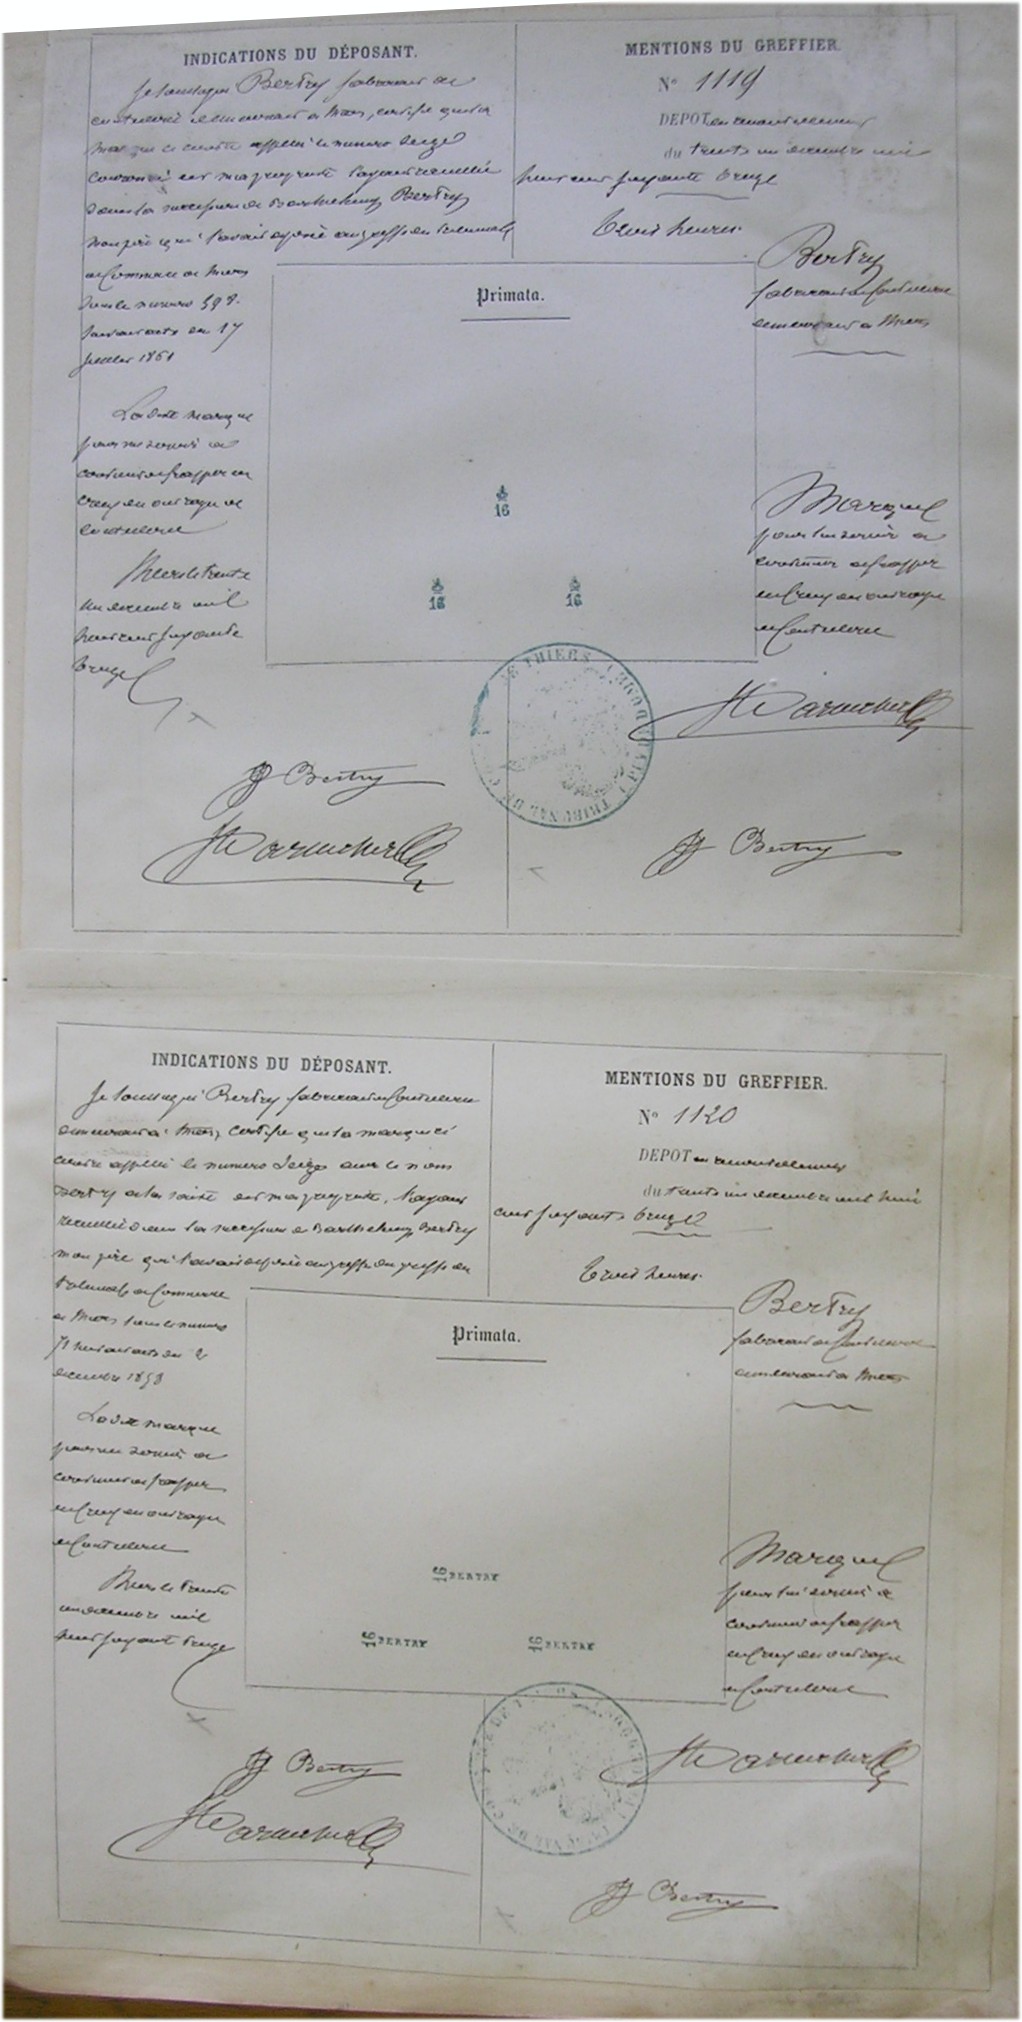 INDICATIONS DU DÉPOSANT.
Je soussigné Bertry fabricant de
coutellerie demeurant à Thiers, certifie que la
marque ci contre appellée le numero seize
couronné est ma propriété l'ayant recueillie
dans la succession de Barthelemy Bertry
mon père qui l'avait déposé au greffe du tribunal
de Commerce de Thiers
sous le numero 598.
suivant acte du 17
juillet 1861
La dite marque
pour me servir à
continuer de frapper en
creux des ouvrages de
coutellerie
Thiers le trente
un decembre mil
huit cent soixante
treize
J Bertry
MENTIONS DU GREFFIER.
N° 1119
DEPOT en renouvellement
du trente un decembre mil
huit cent soixante treize
trois heures.
Primata.
16
16
16
Bertry
fabricant de Coutellerie
demeurant à Thiers
Marque
pour lui servir à
continuer de frapper
en Creux des ouvrages
de Coutellerie
J Bertry
TRIBUNAL DE THIERS
INDICATIONS DU DÉPOSANT.
Je soussigné Bertry fabricant de Coutellerie
demeurant à Thiers certifie que la marque ci
contre appellée le numero seize avec le nom
Bertry à la suite est ma propriété, l'ayant
recueillie dans la succession de Barthelemy Bertry
mon père qui l'avait déposé au greffe du greffe du
tribunal de Commerce
de Thiers sous le numero
71 suivant acte du 2
decembre 1858
La dite marque
pour me servir à
continuer de frapper
en Creux des ouvrages
de Coutellerie
Thiers le trente
un decembre mil
huit soixante treize
J Bertry
MENTIONS DU GREFFIER.
N° 1120
DEPOT en renouvellement
du trente un decembre mil huit
cent soixante treize
trois heures.
Primata.
16 BERTRY
16 BERTRY
16 BERTRY
Bertry
fabricant de Coutellerie
demeurant à Thiers
Marque
pour lui servir à
continuer de frapper
en Creux des ouvrages
de Coutellerie
J Bertry